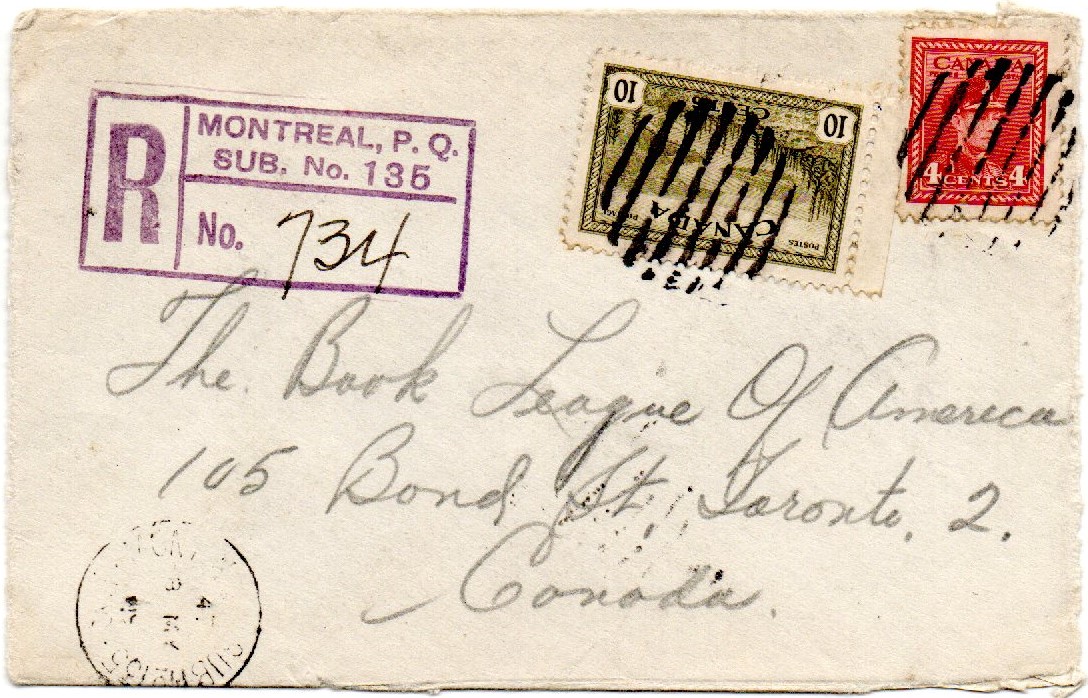 R
MONTREAL, P. Q.
SUB. No. 135
No. 734
10
10
CENTS
CANADA
POSTES
POSTAGE
CANADA
4 CENTS 4
The Book League Of America
105 Bond St, Toronto, 2.
Canada.